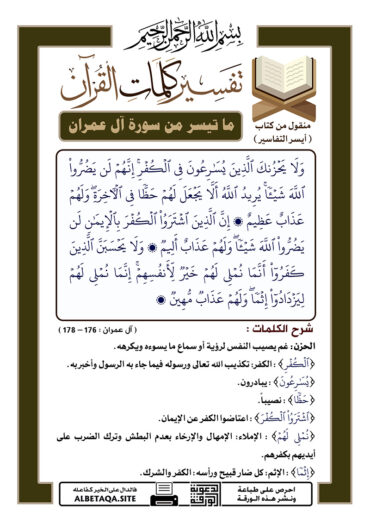 بسم الله الرحمن الرحيم
تفسير كلمات القرآن
منقول من كتاب
( أيسر التفاسير )
ما تيسر من سورة آل عمران
وَلَا يَحْزُنكَ ٱلَّذِينَ يُسَٰرِعُونَ فِى ٱلْكُفْرِ ۚ إِنَّهُمْ لَن يَضُرُّوا۟
ٱللَّهَ شَيْـًٔا ۗ يُرِيدُ ٱللَّهُ أَلَّا يَجْعَلَ لَهُمْ حَظًّا فِى ٱلْـَٔاخِرَةِ ۖ وَلَهُمْ
عَذَابٌ عَظِيمٌ ۝ إِنَّ ٱلَّذِينَ ٱشْتَرَوُا۟ ٱلْكُفْرَ بِٱلْإِيمَٰنِ لَن
يَضُرُّوا۟ ٱللَّهَ شَيْـًٔا وَلَهُمْ عَذَابٌ أَلِيمٌ ۝ وَلَا يَحْسَبَنَّ ٱلَّذِينَ
كَفَرُوٓا۟ أَنَّمَا نُمْلِى لَهُمْ خَيْرٌ لِّأَنفُسِهِمْ ۚ إِنَّمَا نُمْلِى لَهُمْ
لِيَزْدَادُوٓا۟ إِثْمًا ۚ وَلَهُمْ عَذَابٌ مُّهِينٌ ۝
شرح الكلمات :
( آل عمران : 176 – 178 )
الحزن: غم يصيب النفس لرؤية أو سماع ما يسوءه ويكرهه.
﴿ٱلْكُفْرِ﴾ : الكفر: تكذيب الله تعالى ورسوله فيما جاء به الرسول وأخبر به.
﴿يُسَٰرِعُونَ﴾ : يبادرون.
﴿حَظًّا﴾ : نصيباً.
﴿ٱشْتَرَوُا۟ ٱلْكُفْرَ﴾ : اعتاضوا الكفر عن الإيمان.
﴿نُمْلِى لَهُمْ﴾ : الإملاء: الإمهال والإرخاء بعدم البطش وترك الضرب على
أيديهم بكفرهم.
﴿إِثْمًا﴾ : الإثم: كل ضار قبيح ورأسه: الكفر والشرك.
احرص على طباعة
ونشر هذه الورقة
الدعوية
الورقة
فالدال على الخير كفاعله
ALBETAQA.SITE